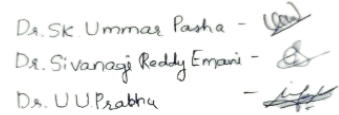 Dr. SK. Ummar Pasha -
Dr. Sivanagi Reddy Emani -
Dr. U U. Prabhu -